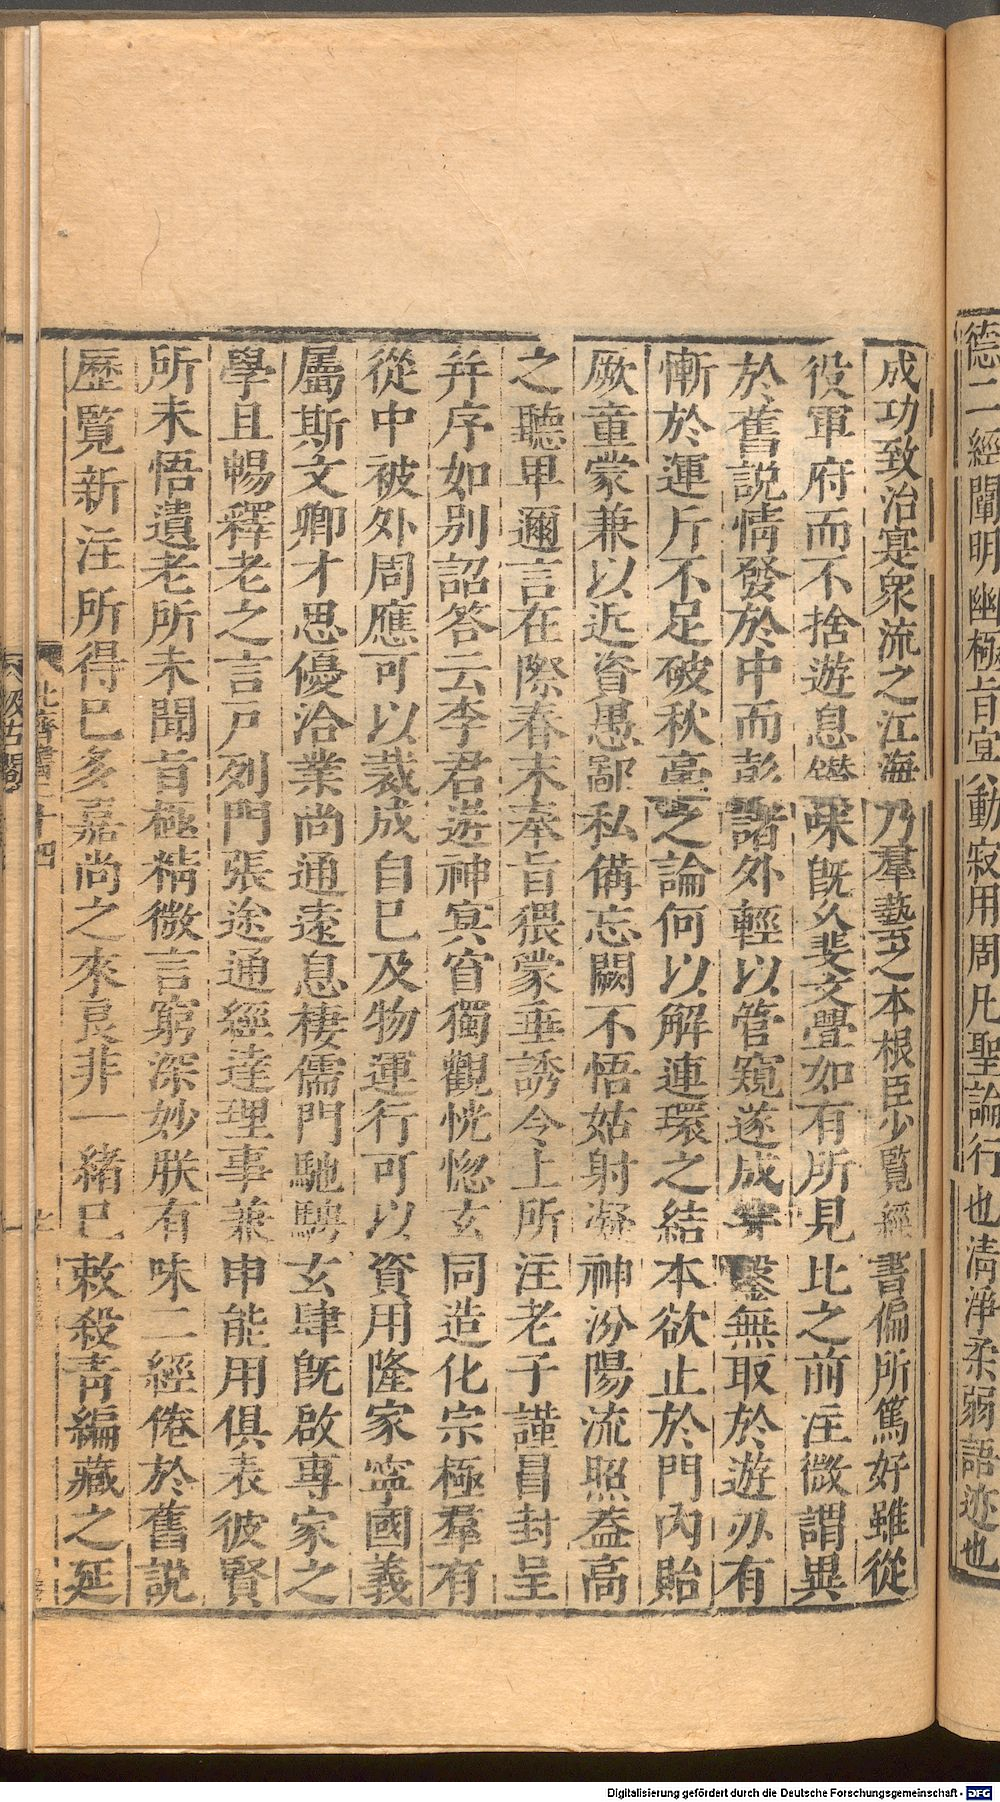 德二經闡明幽極旨宜動寂用周凡聖論行也清淨柔弱語迹也
成功致治寔衆流之江海乃羣藝之本根臣少覽經書偏所篤好雖從
役軍府而不捨遊息鑽味旣久斐亹如有所見比之前注微謂異
於舊說情發於中而彰諸外輕以管窺遂成穿鑿無取於遊刃有
慚於運斤不足破秋毫之論何以解連環之結本欲止於門內貽
厥童蒙兼以近資愚鄙私備忘闕不悟姑射凝神汾陽流照蓋高
之聽卑邇言在際春末奉旨猥蒙垂誘今上所注老子謹冒封呈
并序如別詔答云李君遊神冥窅獨觀恍惚玄同造化宗極羣有
從中被外周應可以裁成自己及物運行可以資用隆家寧國義
屬斯文卿才思優洽業尚通遠息棲儒門馳騁玄肆旣啟專家之
學且暢釋老之言戶列門張途通經達理事兼申能用俱表彼賢
所未悟遺老所未聞旨極精微言窮深妙朕有味二經倦於舊說
歷覽新注所得已多嘉尚之來良非一緒已敕殺青編藏之延
北齊書二十四
汲古閣
Digitalisierung gefördert durch die Deutsche Forschungsgemeinschaft - DFG